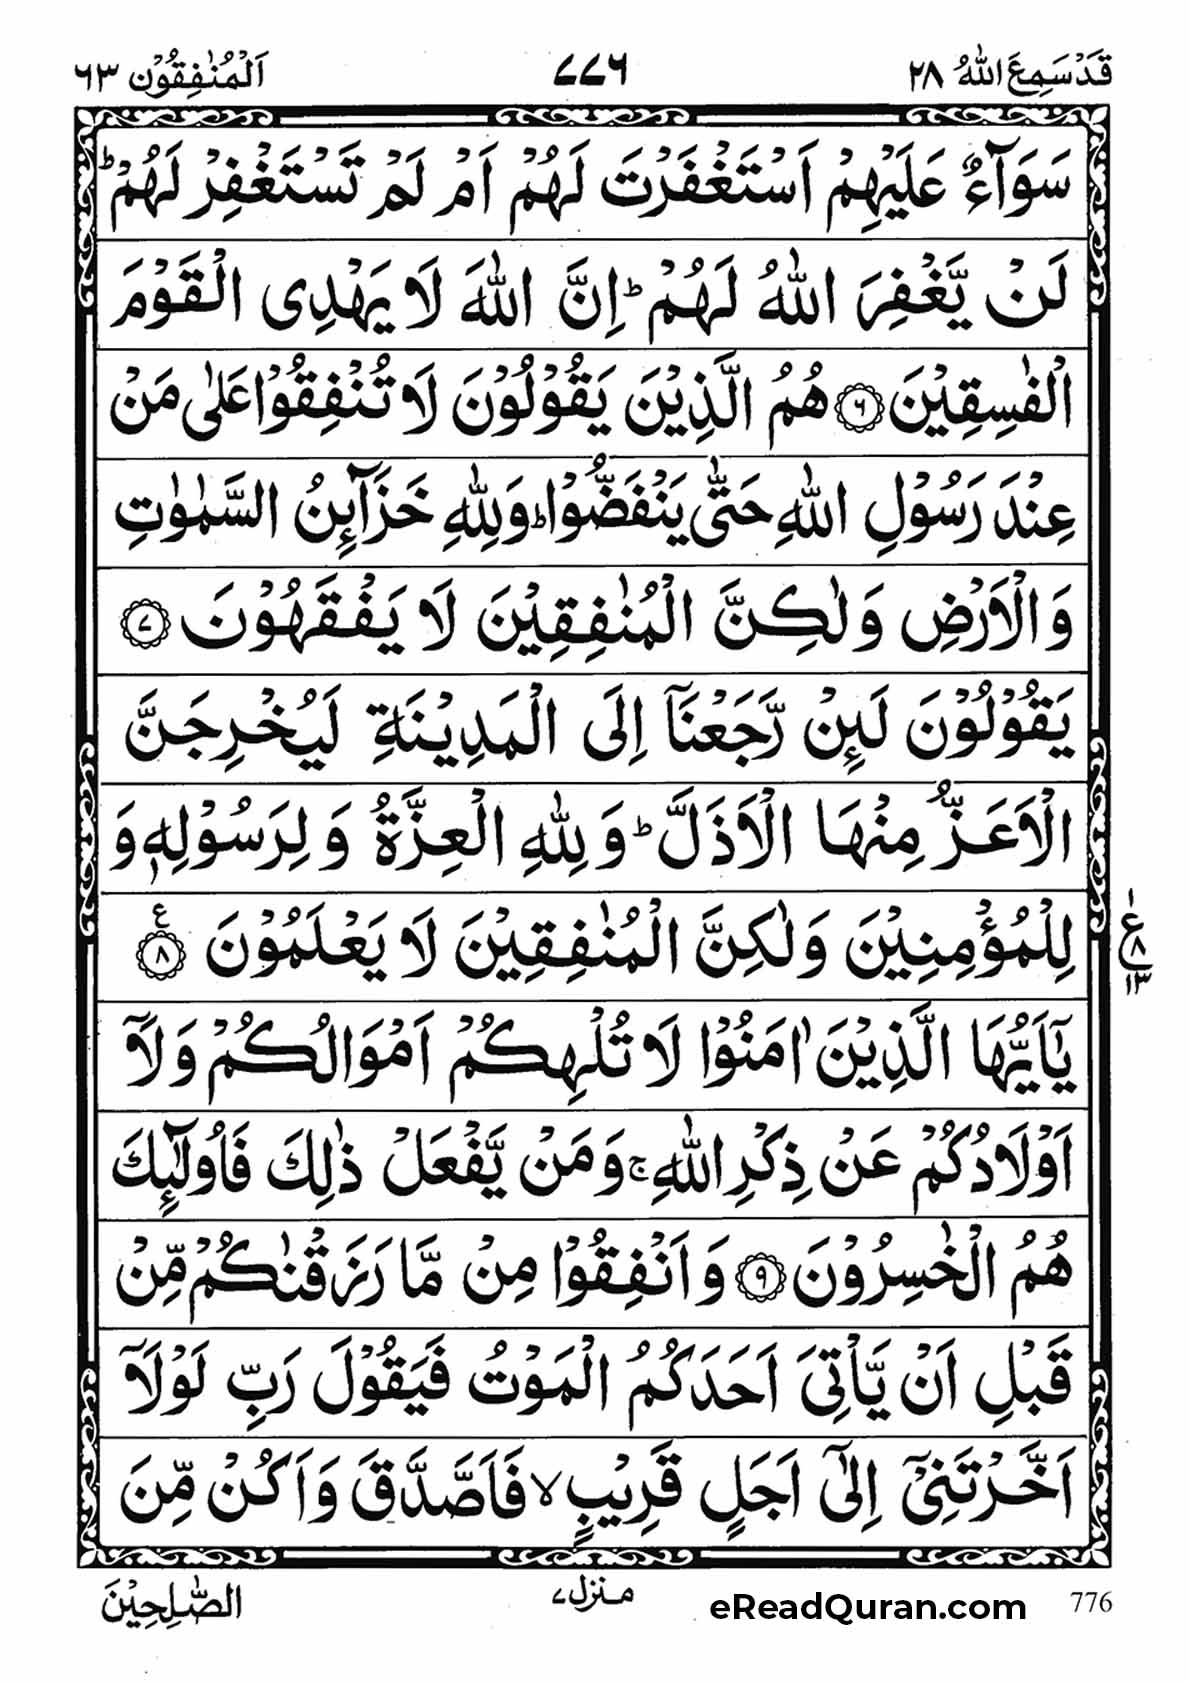 قَدْ سَمِعَ اللّٰهُ ٢٨
٧٧٦
اَلْمُنٰفِقُوْن ٦٣
سَوَآءٌ عَلَيْهِمْ اَسْتَغْفَرْتَ لَهُمْ اَمْ لَمْ تَسْتَغْفِرْ لَهُمْ ؕ
لَنْ يَّغْفِرَ اللّٰهُ لَهُمْ ؕ اِنَّ اللّٰهَ لَا يَهْدِى الْقَوْمَ
الْفٰسِقِيْنَ ۟٦ هُمُ الَّذِيْنَ يَقُوْلُوْنَ لَا تُنْفِقُوْا عَلٰى مَنْ
عِنْدَ رَسُوْلِ اللّٰهِ حَتّٰى يَنْفَضُّوْا ؕ وَلِلّٰهِ خَزَآئِنُ السَّمٰوٰتِ
وَالْاَرْضِ وَلٰكِنَّ الْمُنٰفِقِيْنَ لَا يَفْقَهُوْنَ ۟٧
يَقُوْلُوْنَ لَئِنْ رَّجَعْنَاۤ اِلَى الْمَدِيْنَةِ لَيُخْرِجَنَّ
الْاَعَزُّ مِنْهَا الْاَذَلَّ ؕ وَ لِلّٰهِ الْعِزَّةُ وَ لِرَسُوْلِهٖ وَ
لِلْمُؤْمِنِيْنَ وَلٰكِنَّ الْمُنٰفِقِيْنَ لَا يَعْلَمُوْنَ ۟٨ ع
١ ع ٨ ١٣
يٰۤاَيُّهَا الَّذِيْنَ اٰمَنُوْا لَا تُلْهِكُمْ اَمْوَالُكُمْ وَلَاۤ
اَوْلَادُكُمْ عَنْ ذِكْرِ اللّٰهِ ۚ وَمَنْ يَّفْعَلْ ذٰلِكَ فَاُولٰٓئِكَ
هُمُ الْخٰسِرُوْنَ ۟٩ وَاَنْفِقُوْا مِنْ مَّا رَزَقْنٰكُمْ مِّنْ
قَبْلِ اَنْ يَّاْتِىَ اَحَدَكُمُ الْمَوْتُ فَيَقُوْلَ رَبِّ لَوْلَاۤ
اَخَّرْتَنِىْۤ اِلٰٓى اَجَلٍ قَرِيْبٍ ۙ فَاَصَّدَّقَ وَاَكُنْ مِّنَ
الصّٰلِحِيْنَ
منزل ٧
eReadQuran.com
776